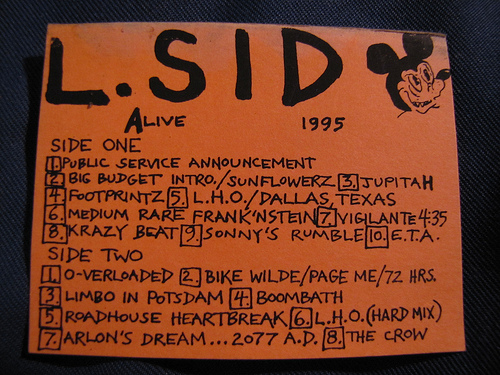 L. SID
ALIVE 1995
SIDE ONE
1. PUBLIC SERVICE ANNOUNCEMENT
2. BIG BUDGET INTRO./SUNFLOWERZ 3. JUPITAH
4. FOOTPRINTZ 5. L.H.O./DALLAS, TEXAS
6. MEDIUM RARE FRANK'NSTEIN 7. VIGILANTE 4:35
8. KRAZY BEAT 9. SONNY'S RUMBLE 10. E.T.A.
SIDE TWO
1. O-VERLOADED 2. BIKE WILDE/PAGE ME/72 HRS.
3. LIMBO IN POTSDAM 4. BOOMBATH
5. ROADHOUSE HEARTBREAK 6. L.H.O. (HARD MIX)
7. ARLON'S DREAM... 2077 A.D. 8. THE CROW